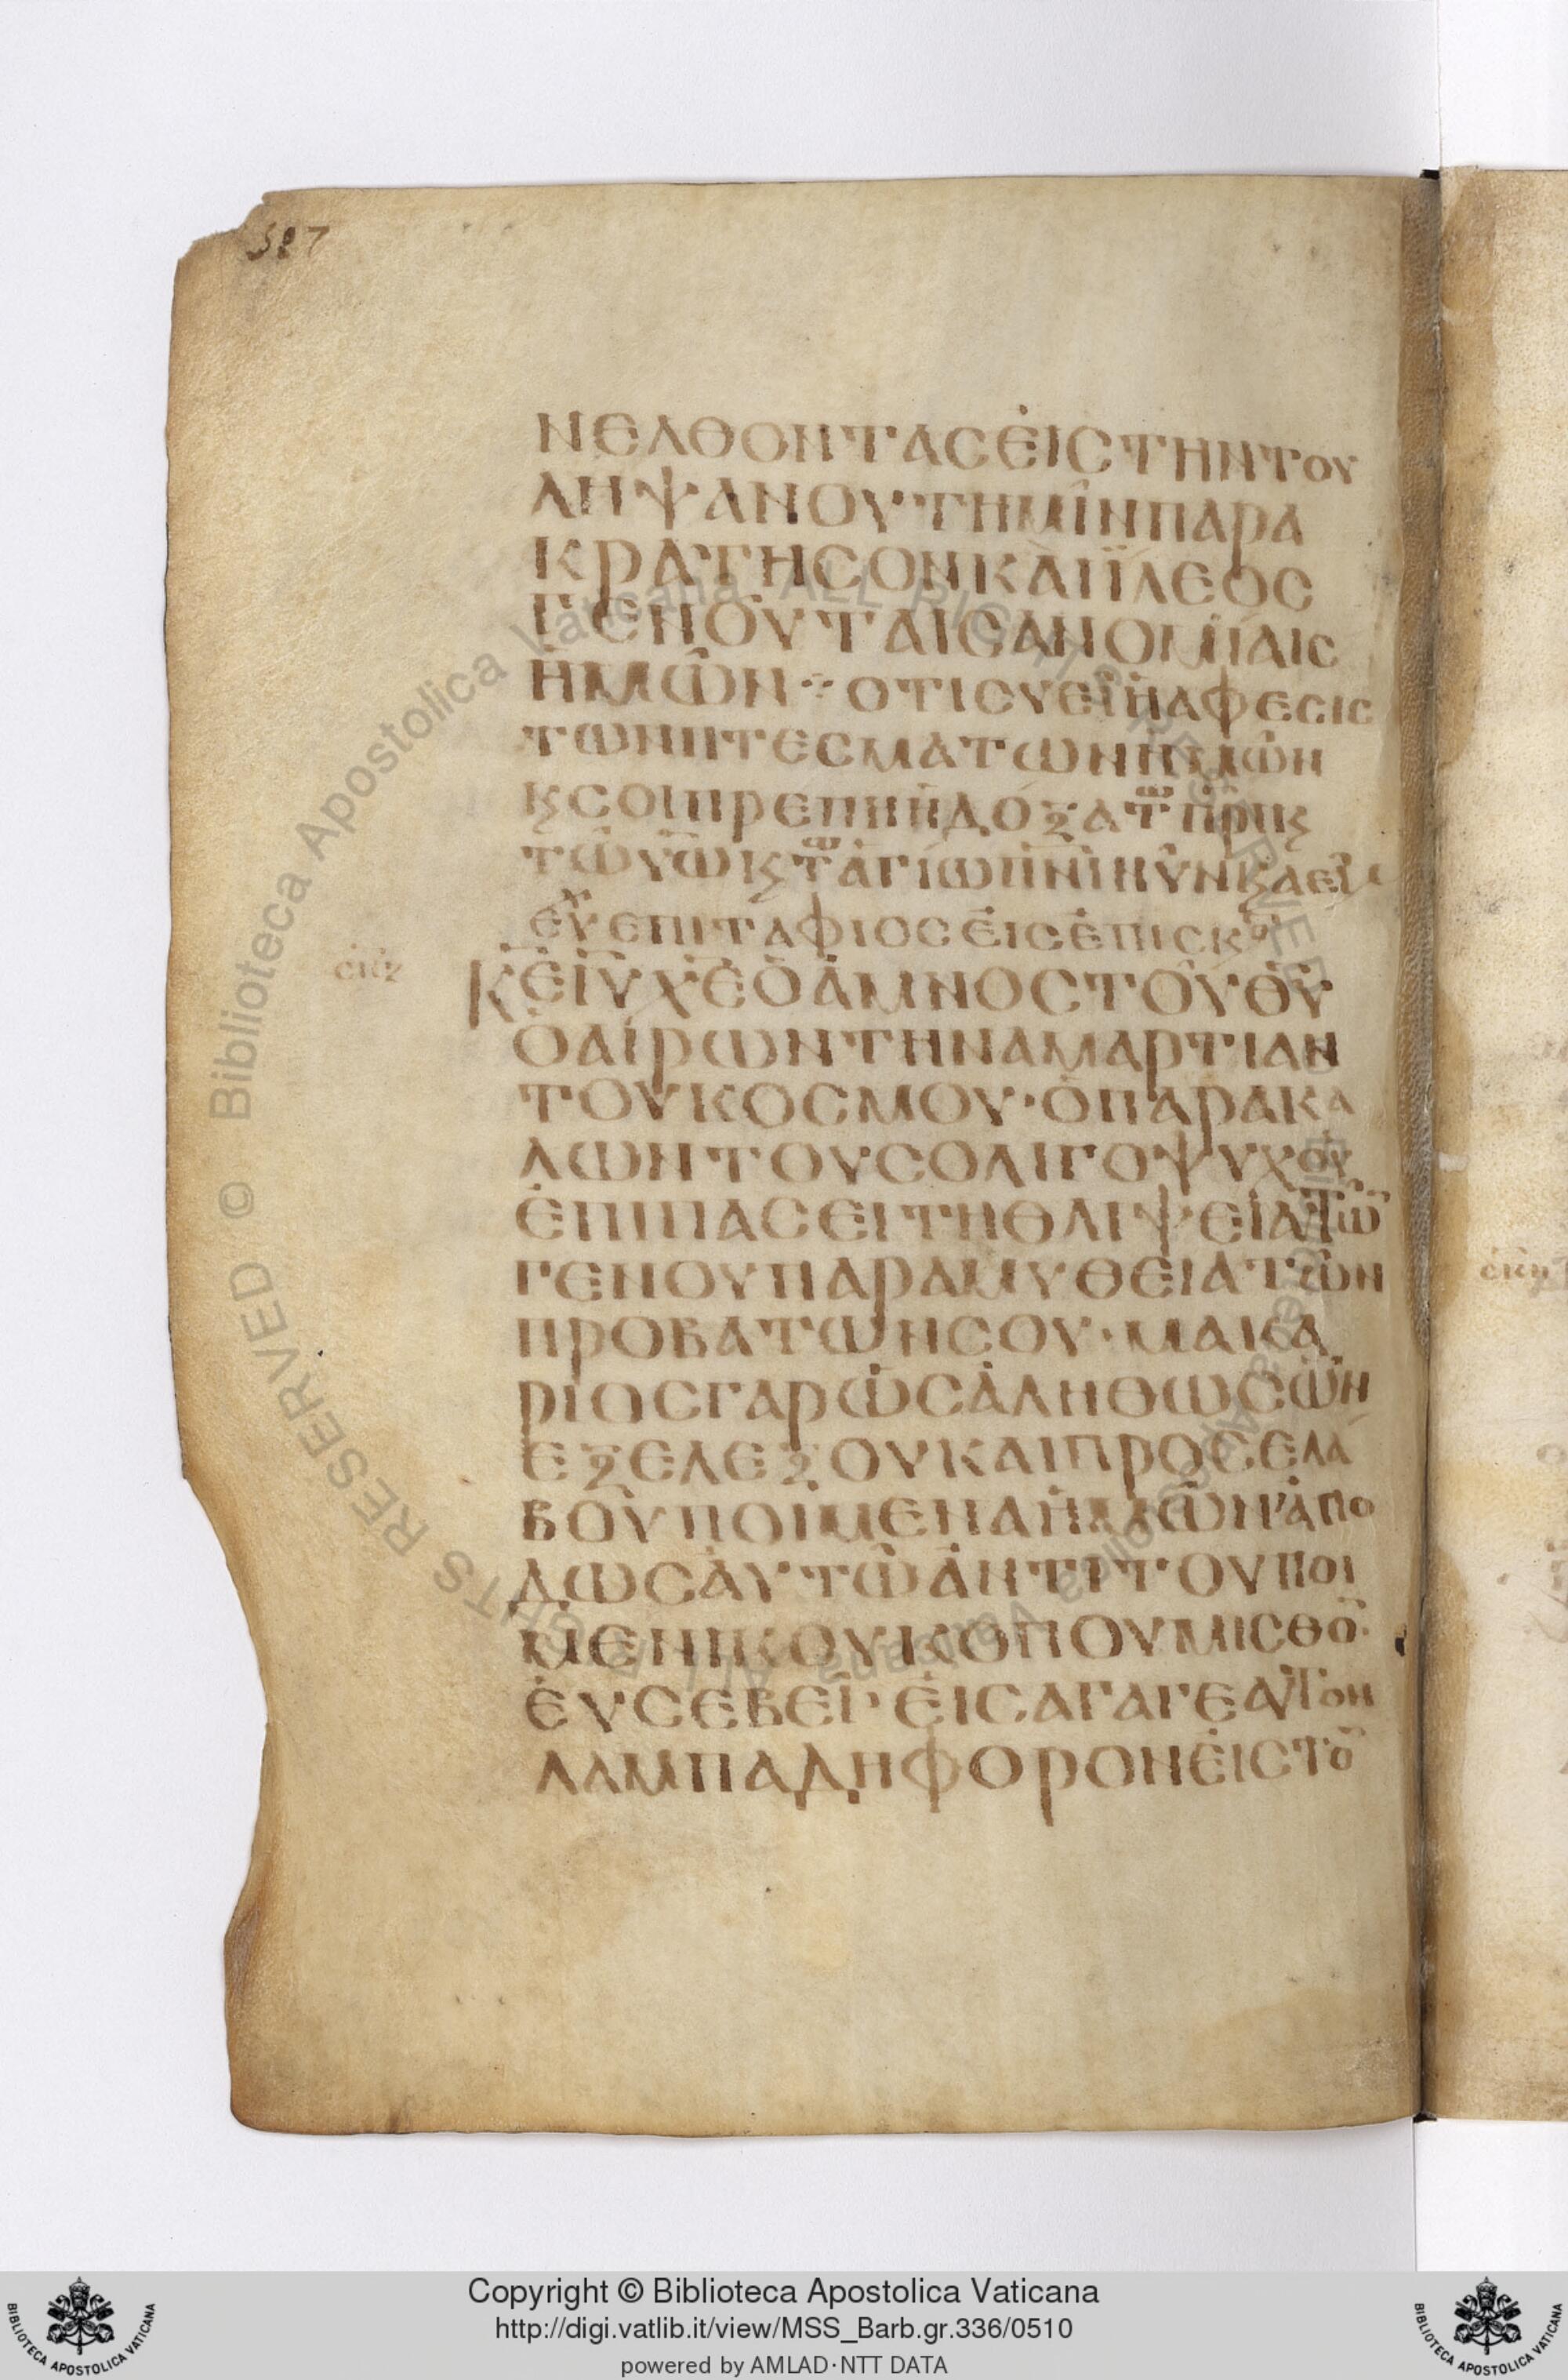 527
ΝΕΛΘΟΝΤΑΣἘΙΣΤΗΝΤΟΥ
ΛΗΨΑΝΟΥ·ΤΗΜῒΝΠΑΡΑ
ΚΡΑΤΗΣΟΝΚΑΙΪΛΕΟΣ
ΓΕΝΟΥΤΑΙΣΑΝΟΜΊΑΙΣ
ἩΜῶΝ ⁘ ΟΤΙΣΥΕΙἩΑΦΕΣΙΣ
ΤΩΝΠΤΕΣΜΑΤΩΝἩΜῶΝ
ϗΣΟΙΠΡΕΠΗἩΔΌΞΑΤ͠ω Π͞ΡΙϗ
Τῶ Υ͞ΩϗΤ͠ω ἉΓΊΩΠ͞ΝΙΝῦΝϗΑΕΙ
ΕΥχ ΕΠΙΤΑΦΙΟΣἘΙΣἘΠΙΣΚο
σκζ
Κ͞Ε Ι͞Υ Χ͞Ε ὉἈΜΝΟΣΤΟῦΘ͞Υ
ὉΑΊΡΩΝΤΗΝΑΜΑΡΤΙΑΝ
ΤΟΥΚΟΣΜΟΥ·ὉΠΑΡΑΚΑ
ΛΩΝΤΟΥΣΟΛΙΓΟΨΥΧΟΥ
ἘΠΙΠΑΣΕΙΤΗΘΛΙΨΕΙΑΤΩ͞
ΓΕΝΟΥΠΑΡΑΜΥΘΕΙΑΤῶΝ
ΠΡΟΒΑΤΩΝΣΟΥ·ΜΑΚΑ
ΡΙΟΣΓΑΡὩΣἈΛΗΘΩΣὯΝ
ΕΞΕΛΕΞΟΥΚΑΙΠΡΟΣΕΛΑ
ΒΟΥΠΟΙΜΕΝΑἩΜῶΝ·ἈΠΟ
ΔΩΣἈΥΤῶἈΝΤΙΤΟΥΠΟΙ
ΜΕΝΙΚΟΥΚΟΠΟΥΜΙΣΘΟ͞·
ἘΥΣΕΒΕΙ͂·ἘΙΣΑΓΑΓΕΑΥΤΟΝ
ΛΑΜΠΑΔΗΦΟΡΟΝἘΙΣΤΟ͞
Copyright © Biblioteca Apostolica Vaticana
http://digi.vatlib.it/view/MSS_Barb.gr.336/0510
powered by AMLAD·NTT DATA
BIBLIOTECA APOSTOLICA VATICANA
BIBLIOTECA APOSTOLICA VATICANA